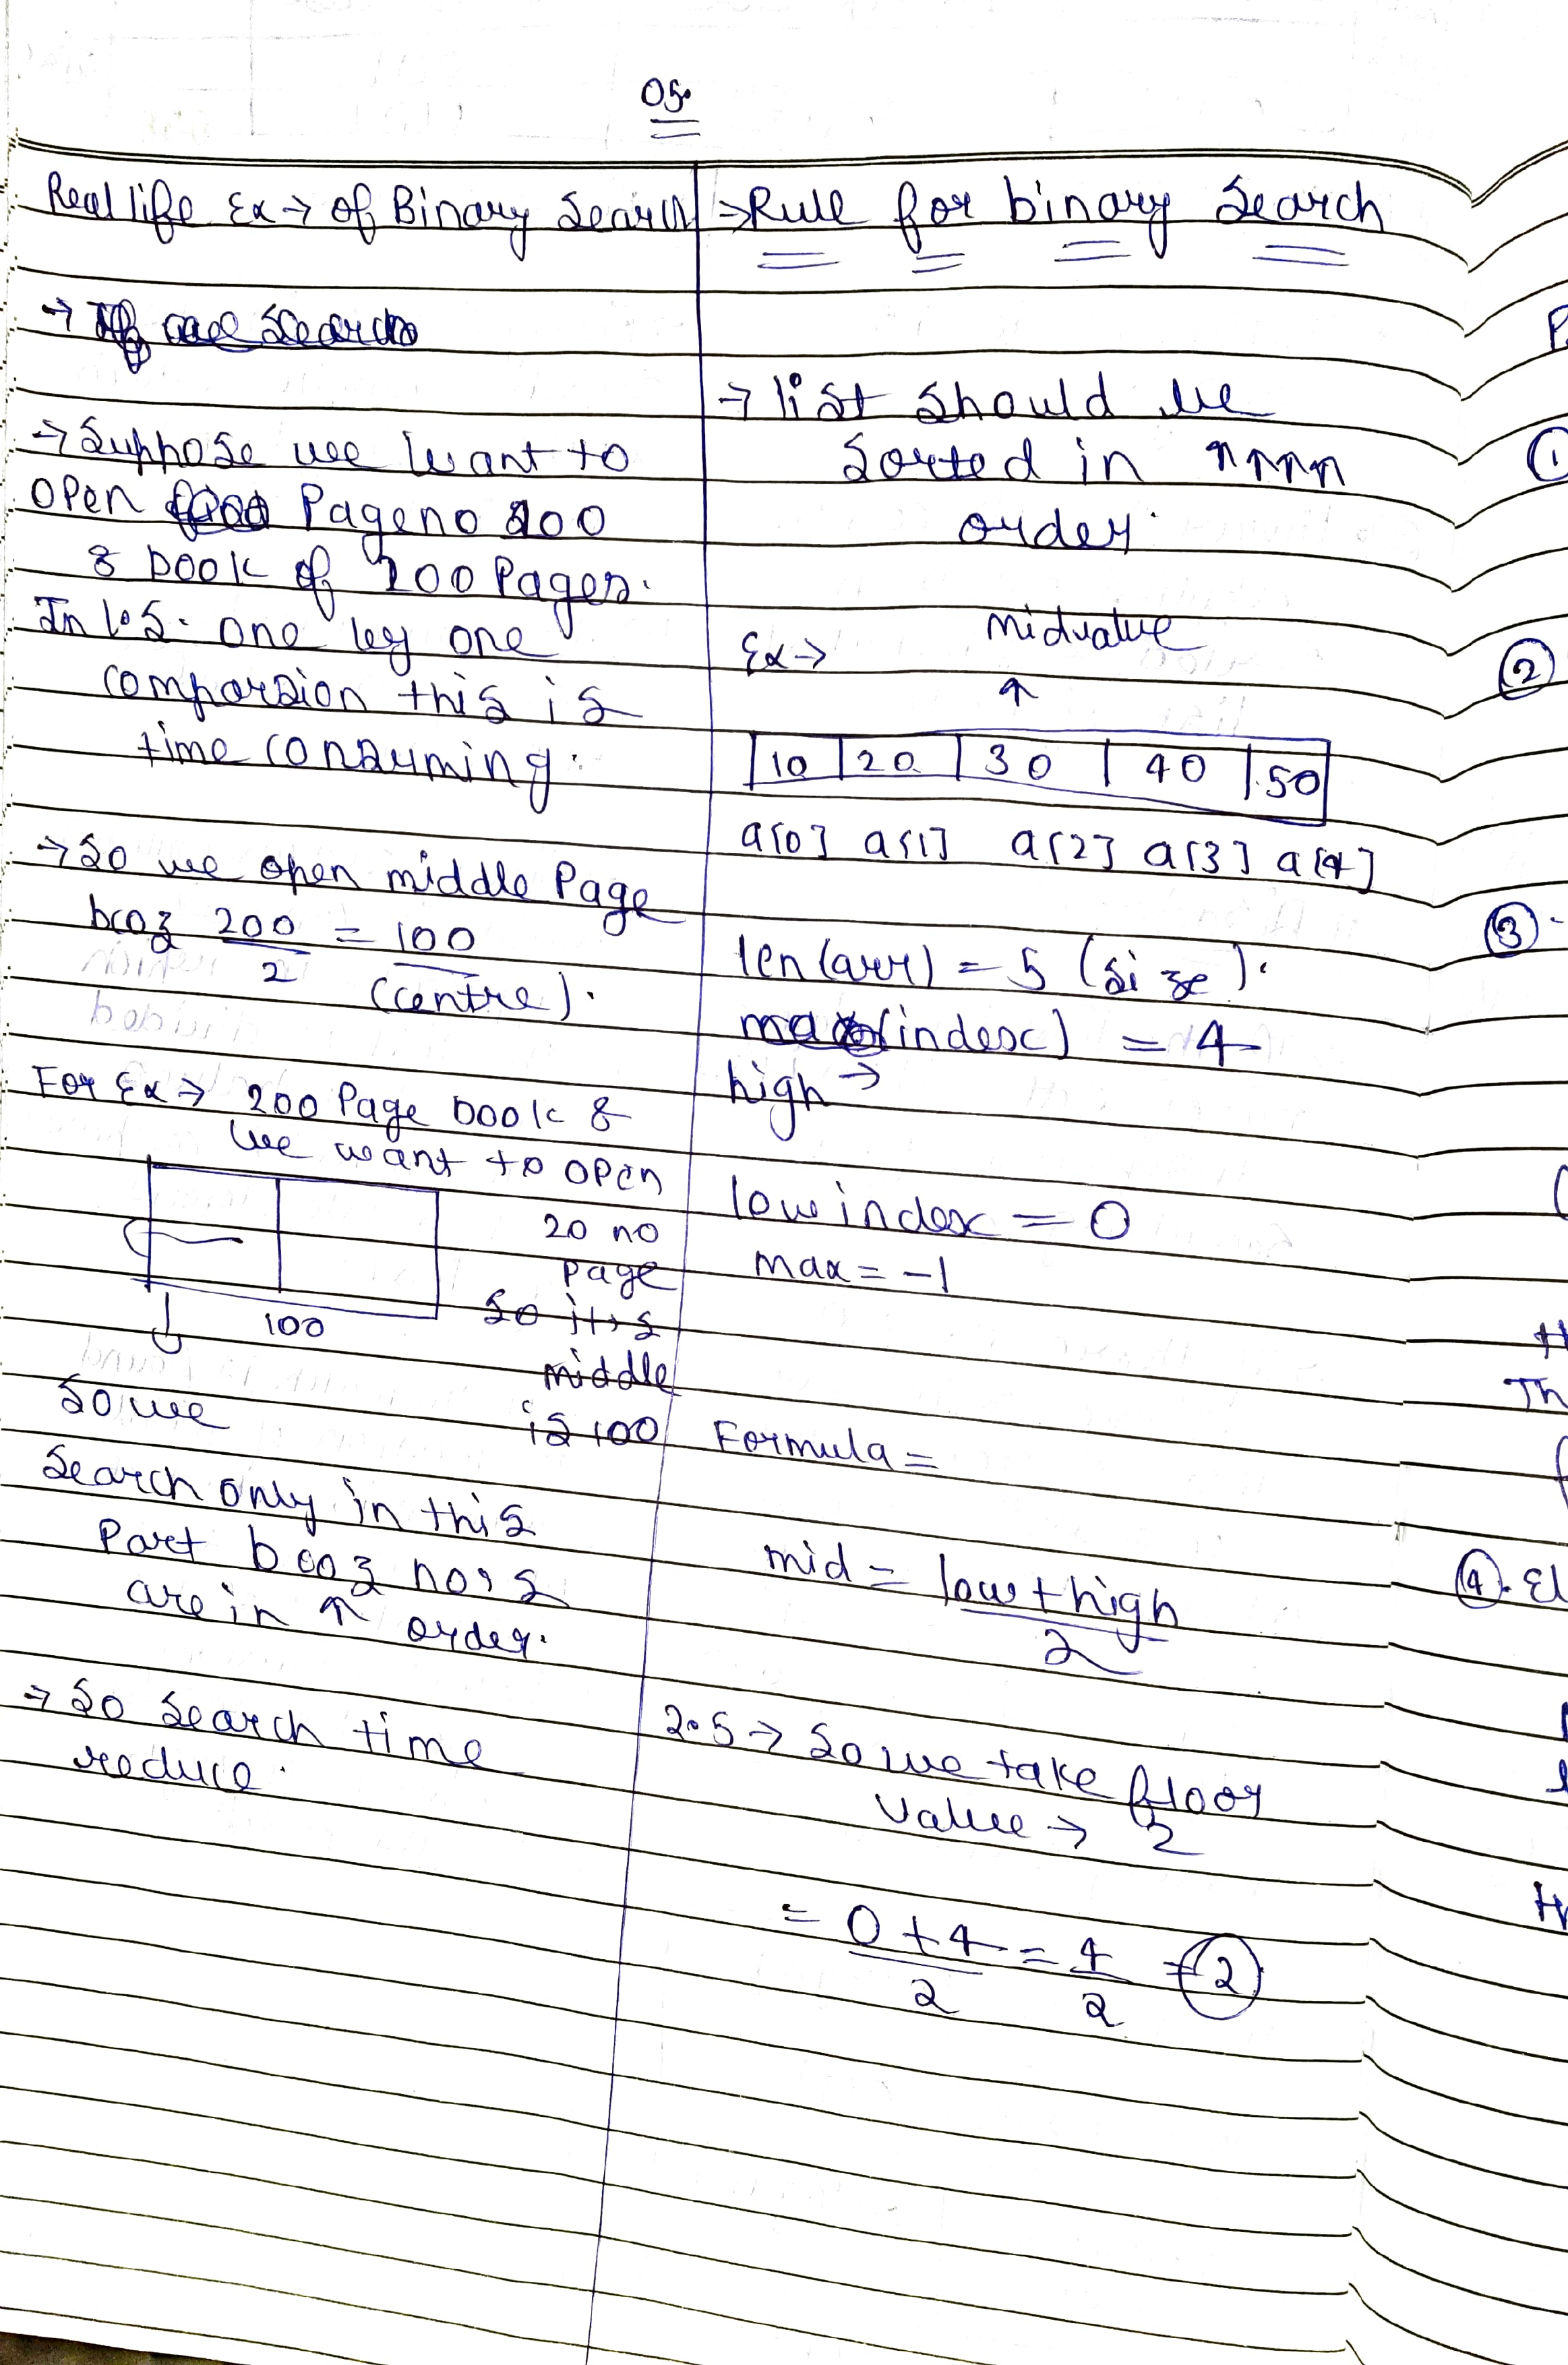 05.
Real life Ex → of Binary Search
→ Suppose we want to
open Page no 100
& book of 200 Pages.
In L.S. one by one
comparsion this is
time consuming.
→ So we open middle Page
bcoz 200/2 = 100
(centre).
For Ex → 200 Page book &
we want to open
20 no
page
So it's
middle
is 100
100
So we
Search only in this
Part bcoz no's
are in ↑ order.
→ So Search time
reduce.
⇒ Rule for binary Search
→ list should be
Sorted in ↑
order.
Ex → midvalue
↑
10 20 30 40 50
a[0] a[1] a[2] a[3] a[4]
len(arr) = 5 (Size).
(index) = 4
high →
low index = 0
max = -1
Formula =
mid = low + high / 2
2.5 → So we take floor
Value → 2
= 0 + 4 / 2 = 4 / 2 = 2
1
2
3
Th
4. El